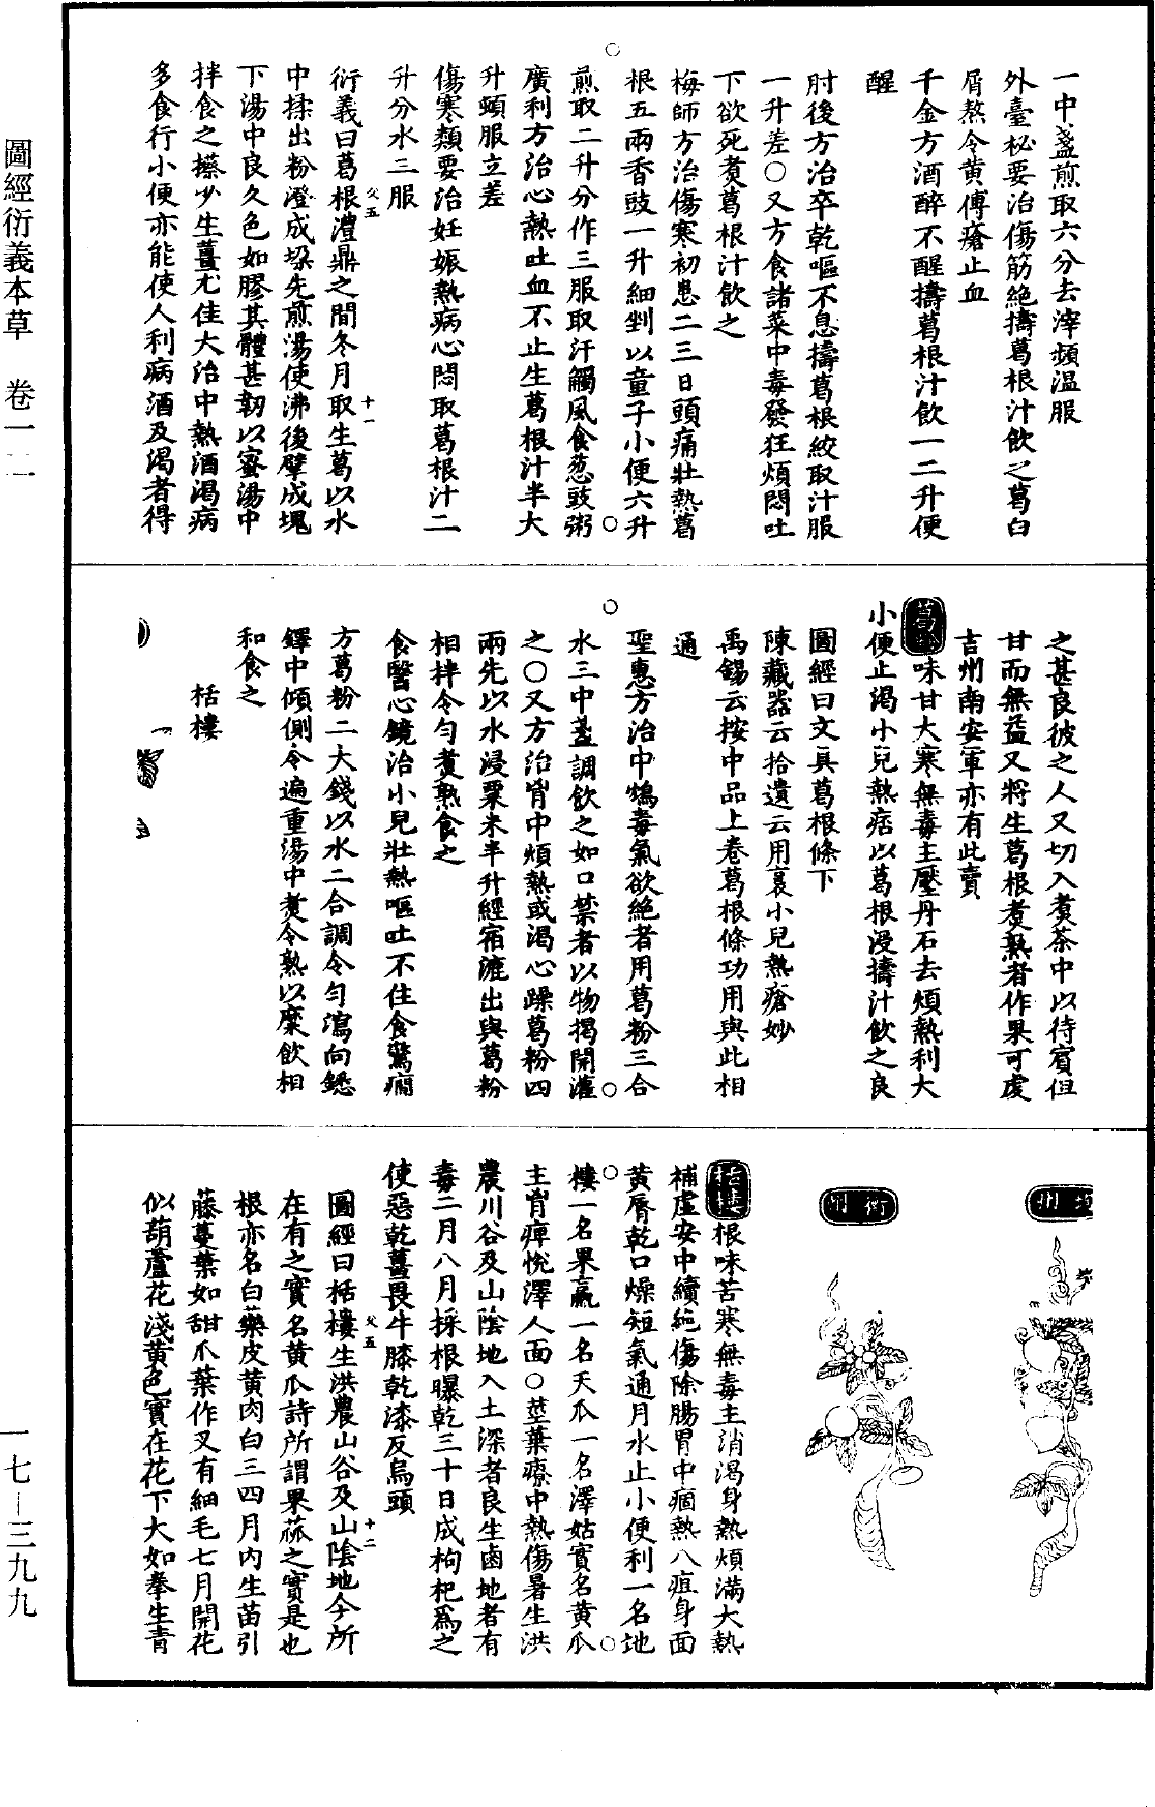 一中盞煎取六分去滓頻溫服
外臺秘要治傷筋絶擣葛根汁飲之葛白
屑熬令黄傅瘡止血
千金方酒醉不醒擣葛根汁飲一二升便
醒
肘後方治卒乾嘔不息擣葛根絞取汁服
一升差○又方食諸菜中毒發狂煩悶吐
下欲死煑葛根汁飲之
梅師方治傷寒初患二三日頭痛壯熱葛
根五兩香豉一升細剉以童子小便六升
煎取二升分作三服取汗觸風食葱豉粥
廣利方治心熱吐血不止生葛根汁半大
升頓服立差
傷寒類要治妊娠熱病心悶取葛根汁二
升分水三服
父五
十一
衍義曰葛根澧鼎之間冬月取生葛以水
中揉出粉澄成垜先煎湯使沸後擘成塊
下湯中良久色如膠其體甚韌以蜜湯中
拌食之擦少生薑尤佳大治中熱酒渴病
多食行小便亦能使人利病酒及渴者得
之甚良彼之人又切入煑茶中以待賓但
甘而無益又將生葛根煑熟者作果可䖏
吉州南安軍亦有此賣
葛 味甘大寒無毒主壓丹石去煩熱利大
小便止渴小兒熱痞以葛根浸擣汁飲之良
圖經曰文具葛根條下
陳藏器云拾遺云用裛小兒熱瘡妙
禹錫云按中品上卷葛根條功用與此相
通
聖惠方治中鴆毒氣欲絶者用葛粉三合
水三中盞調飲之如口禁者以物揭開灌
之○又方治胷中煩熱或渴心躁葛粉四
兩先以水浸粟米半升經宿漉出與葛粉
相拌令勻煑熟食之
食醫心鏡治小兒壯熱嘔吐不住食驚癎
方葛粉二大錢以水二合調令勻瀉向鍃
鑼中傾側令遍重湯中煑令熟以糜飲相
和食之
栝樓
州
衡州
栝樓根味苦寒無毒主消渴身熱煩滿大熱
補虛安中續絶傷除腸胃中痼熱八疸身面
黄脣乾口燥短氣通月水止小便利一名地
樓一名果臝一名天瓜一名澤姑實名黄瓜
主胷痺悅澤人面○莖葉療中熱傷暑生洪
農川谷及山陰地入土深者良生鹵地者有
毒二月八月採根曝乾三十日成枸杞爲之
使惡乾薑畏牛膝乾漆反烏頭
父五
十二
圖經曰栝樓生洪農山谷及山陰地今所
在有之實名黄瓜詩所謂果蓏之實是也
根亦名白藥皮黄肉白三四月内生苗引
藤蔓葉如甜瓜葉作叉有細毛七月開花
似葫蘆花淺黄色實在花下大如拳生青
圖經衍義本草 卷一二
一七—三九九